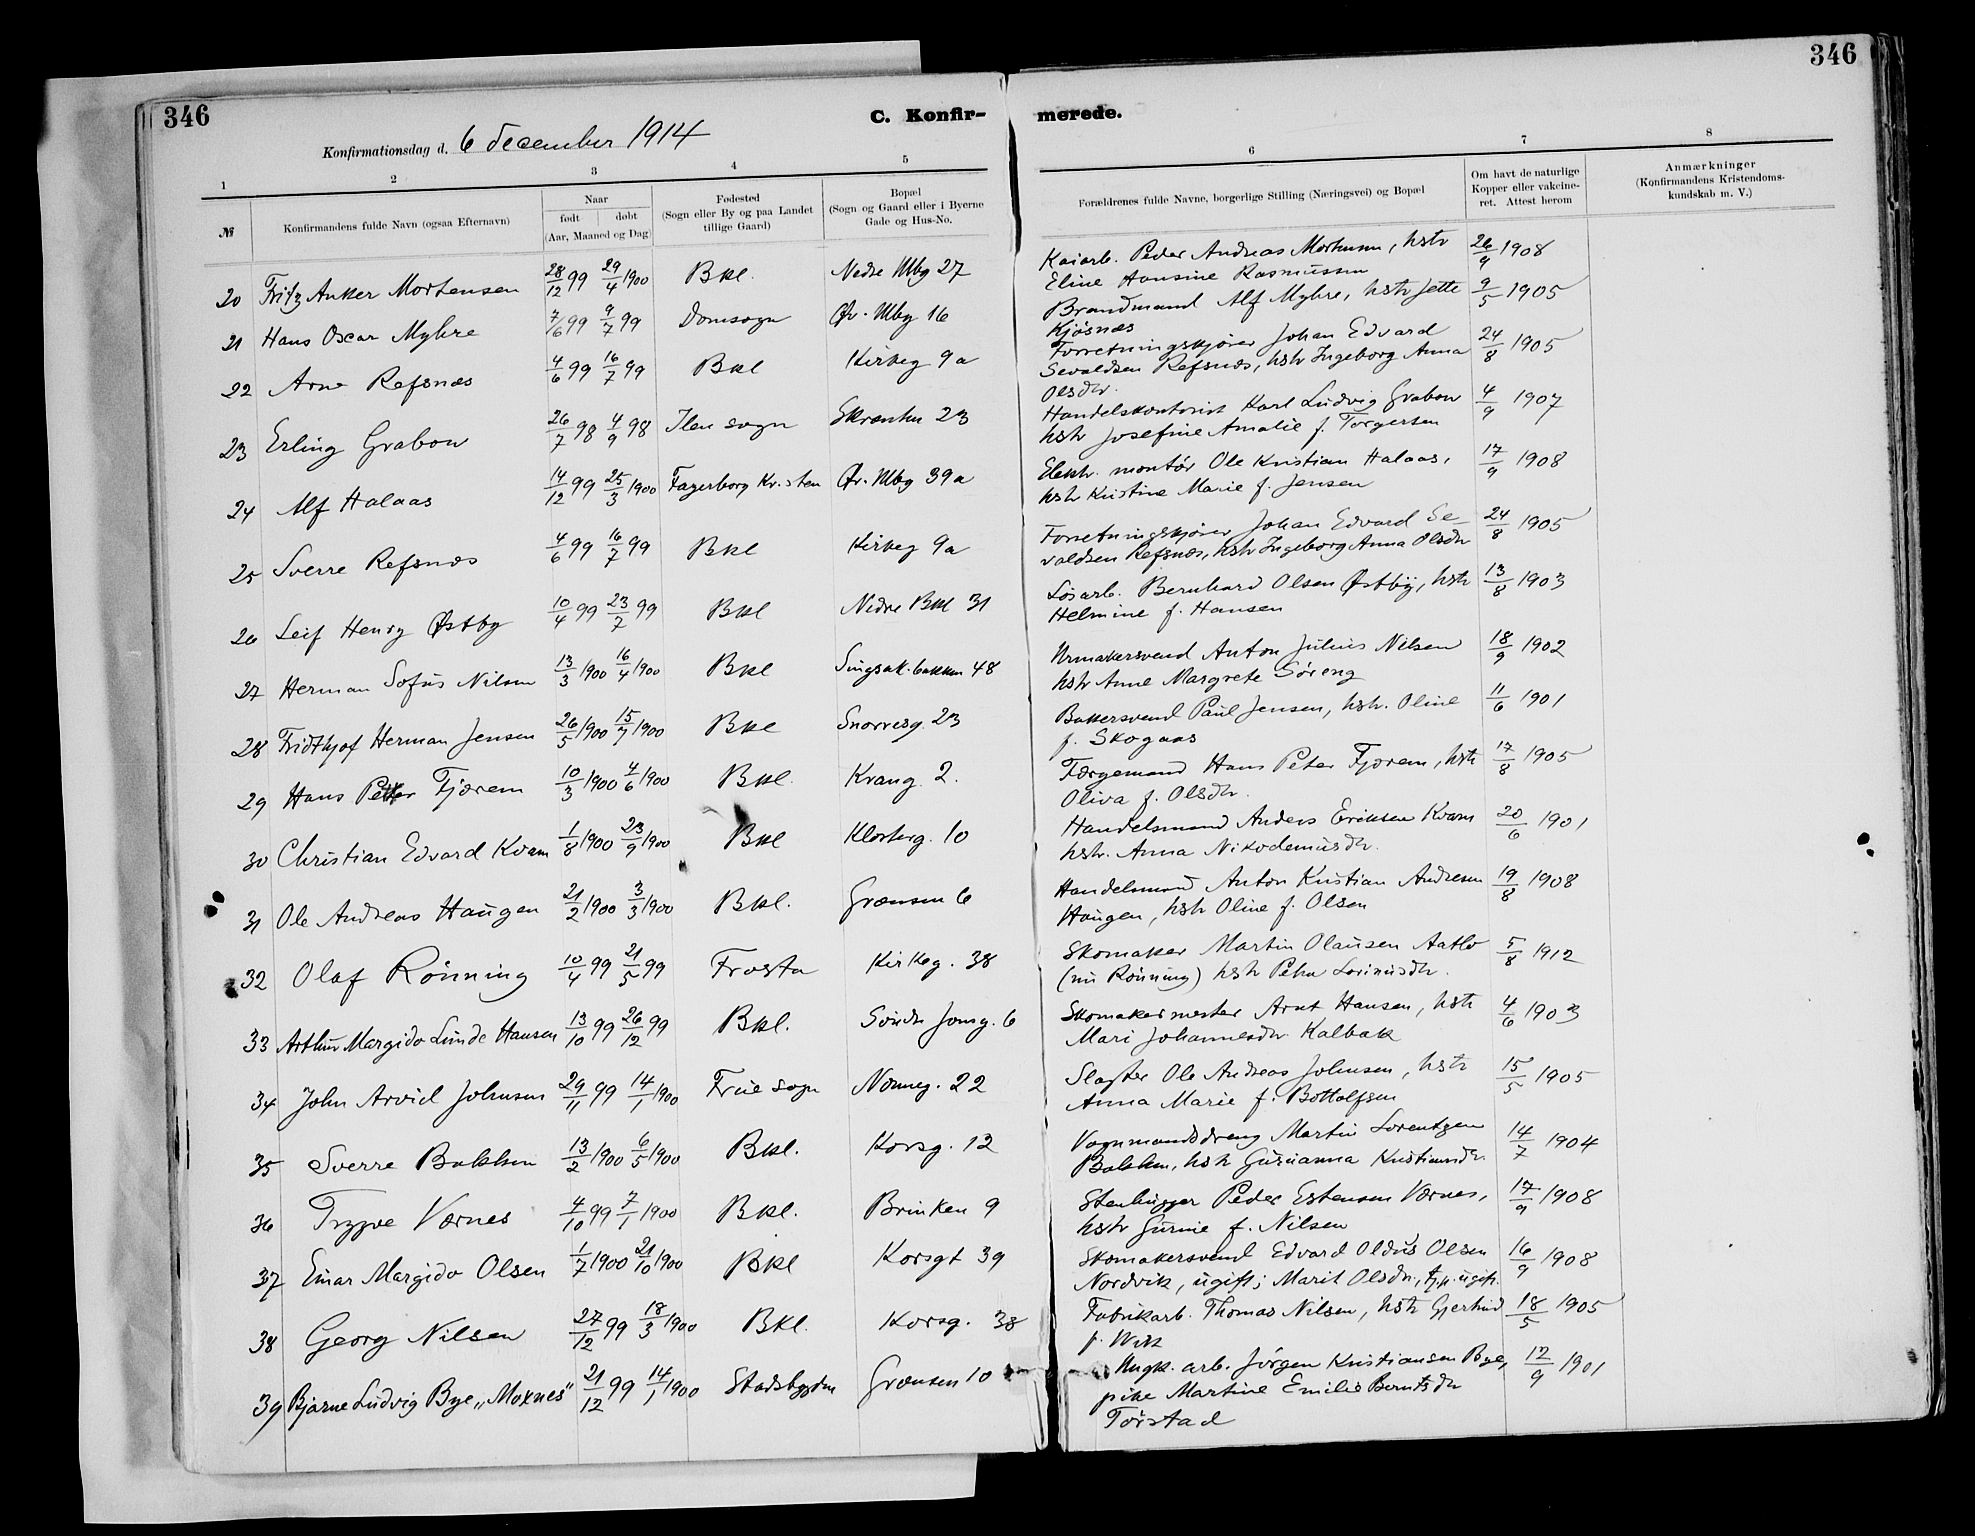 346
346
C. Konfir-
merede.
Konfirmationsdag d. 6 december 1914
1 2 3 4 5 6 7 8
№ Konfirmandens fulde Navn (ogsaa Efternavn) Naar født døbt (Aar, Maaned og Dag) Fødested (Sogn eller By og paa Landet tillige Gaard) Bopæl (Sogn og Gaard eller i Byerne Gade og Hus-No. Forældrenes fulde Navne, borgerlige Stilling (Næringsvei) og Bopæl Om havt de naturlige Kopper eller vakcineret. Attest herom Anmærkninger (Konfirmandens Kristendomskundskab m. V.)
20 Fritz Anker Mortensen 28/12 99 29/4 1900 Bkl. Nedre Mbg 27 Kaiarb. Peder Andreas Mortensen, hstr 26/9 1908
Eline Hansine Rasmussen
21 Hans Oscar Myhre 7/6 99 9/7 99 Domsogn Øv. Mbg 16 Brandmand Alf Myhre, hstr Jette 9/5 1905
Kjøsnæs
22 Arne Refsnæs 4/6 99 16/7 99 Bkl Kirkeg 9a Forretningskjører Johan Edvard 24/8 1905
Sevaldsen Refsnæs, hstr Ingeborg Anna
Olsdtr.
23 Erling Grabow 26/7 98 4/9 98 Ilen sogn 23 Handelskontorist Karl Ludvig Grabow 4/9 1907
hstr Josefine Amalie f. Torgersen
24 Alf Halaas 14/12 99 25/3 1900 Fagerborg Kr.sten Øv. Mbg 39a Elektr. montør Ole Kristian Halaas, 17/9 1908
hstr Kristine Marie f. Jensen
25 Sverre Refsnæs 4/6 99 16/7 99 Bkl Kirkeg 9a Forretningskjører Johan Edvard Se- 24/8 1905
valdsen Refsnæs, hstr Ingeborg Anna Olsdtr
26 Leif Henry Østby 10/4 99 23/7 99 Bkl Nedre Bkl 31 Løsarb. Bernhard Olsen Østby, hstr 13/8 1903
Helmine f. Hansen
27 Herman Sofus Nilsen 13/3 1900 16/4 1900 Bkl Singsak.bakken 48 Urmakersvend Anton Julius Nilsen 18/9 1902
hstr Anne Margrete Søreng
28 Fridthjof Herman Jensen 26/5 1900 15/7 1900 Bkl Snorresg. 23 Bakersvend Paul Jensen, hstr. Oline 11/6 1901
f. Skogaas
29 Hans Petter Fjørem 10/3 1900 4/6 1900 Bkl. Krang. 2. Færgemand Hans Peter Fjørem, hstr 17/8 1905
Oliva f. Olsdtr.
30 Christian Edvard Kvam 1/8 1900 23/9 1900 Bkl Klosterg. 10 Handelsmand Anders Eriksen Kvam 20/6 1901
hstr. Anna Nikodemusdtr.
31 Ole Andreas Haugen 21/2 1900 3/3 1900 Bkl. Grænsen 6 Handelsmand Anton Kristian Andresen 19/8 1908
Haugen, hstr Oline f. Olsen
32 Olaf Rønning 10/4 99 21/5 99 Frosta Kirkeg. 38 Skomaker Martin Olausen Aatlo 5/8 1912
(nu Rønning) hstr Petra Lorinusdtr.
33 Arthur Margido Lunde Hansen 13/10 99 26/12 99 Bkl. Søndre Jonsg. 6 Skomakermester Arnt Hansen, hstr 4/6 1903
Mari Johannesdtr Kalbak
34 John Arvid Johnsen 29/11 99 14/1 1900 Frue sogn Nonneg. 22 Slagter Ole Andreas Johnsen, hstr 15/5 1905
Anna Marie f. Bottolfsen
35 Sverre Bakken 13/2 1900 6/5 1900 Bkl. Korsg. 12 Vognmandsdreng Martin Lorentzen 14/7 1904
Bakken, hstr Gurianna Kristiansdtr.
36 Trygve Værnes 4/10 99 7/1 1900 Bkl. Brinken 9 Stenhugger Peder Estensen Værnes, 17/9 1908
hstr Gurine f. Nilsen
37 Einar Margido Olsen 1/7 1900 21/10 1900 Bkl Korsgt 39 Skomakersvend Edvard Oldus Olsen 16/9 1908
Nordvik, ugift; Marit Olsdtr., tj.p. ugift.
38 Georg Nilsen 27/12 99 18/3 1900 Bkl. Korsg. 38 Fabrikarb. Thomas Nilsen, hstr Gjertrud 18/5 1905
f. Wik
39 Bjarne Ludvig Bye „Moxnes" 21/12 99 14/1 1900 Stadsbygden Grænsen 10 Ungk. arb. Jørgen Kristiansen Bye, 12/9 1901
pike Martine Emilie Berntsdtr
Tørstad